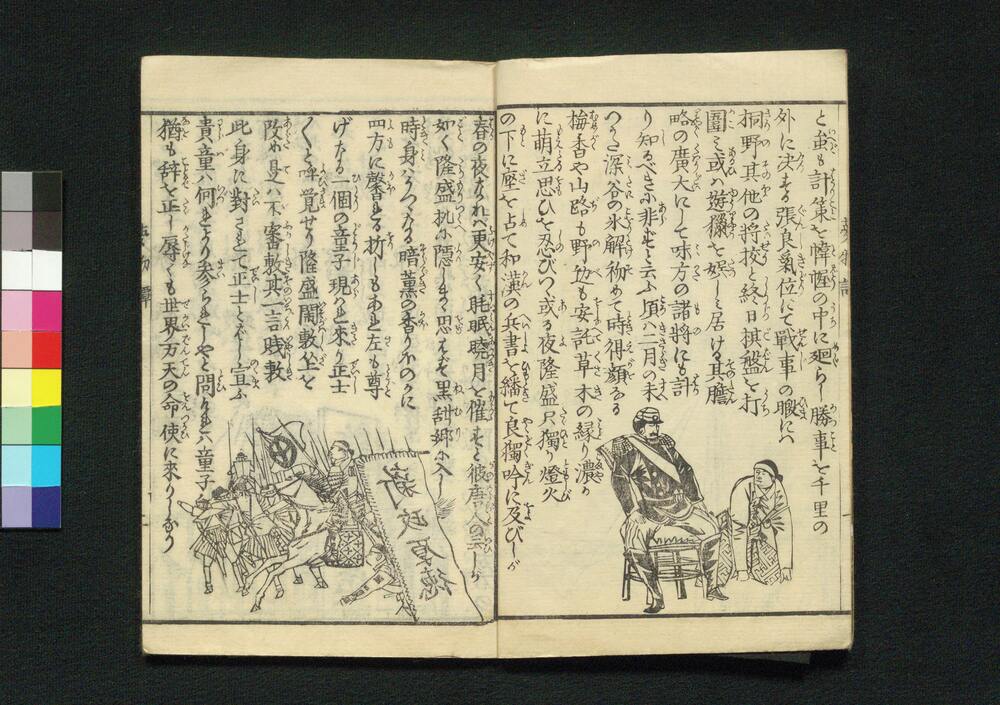 と虽も計策を幃幄の中に廻らし勝事を千里の
外に决する張良氣位にて戦事の暇にハ
桐野其他の將校と終日棋盤を打
圍ミ或ハ遊獵を娯しミ居ける其膽
略の廣大にして味方の諸將にも計
り知るべきに非ずと云ふ頃ハ二月の末
つかた深谷の氷解初めて時得顔なる
梅香や山路も野辺も安託草木の緑り濃か
に萌立思ひを忍びつゝ或る夜隆盛只獨り燈火
の下に座を占て和漢の兵書を繙て良獨吟に及びしが
春の夜なれバ更安く眊眠暁月を催すと彼唐人の云しが
如く隆盛机に隠しまゝ思はず黒甜郷に入し
時身ハうつゝなる暗薫の香り不のかに
四方に馨ると折しもあれ左も尊
げなる一個の童子現れ來り正士
〱と呼覚せり隆盛闇敷坐を
改め見ハ不審敷其言賎敷
此身に對されて正士とよバし宣ふ
貴童ハ何れより参られしやと問けれバ童子
猶も辞を正し辱くも世界万天の命使に來りしなり
新政厚徳